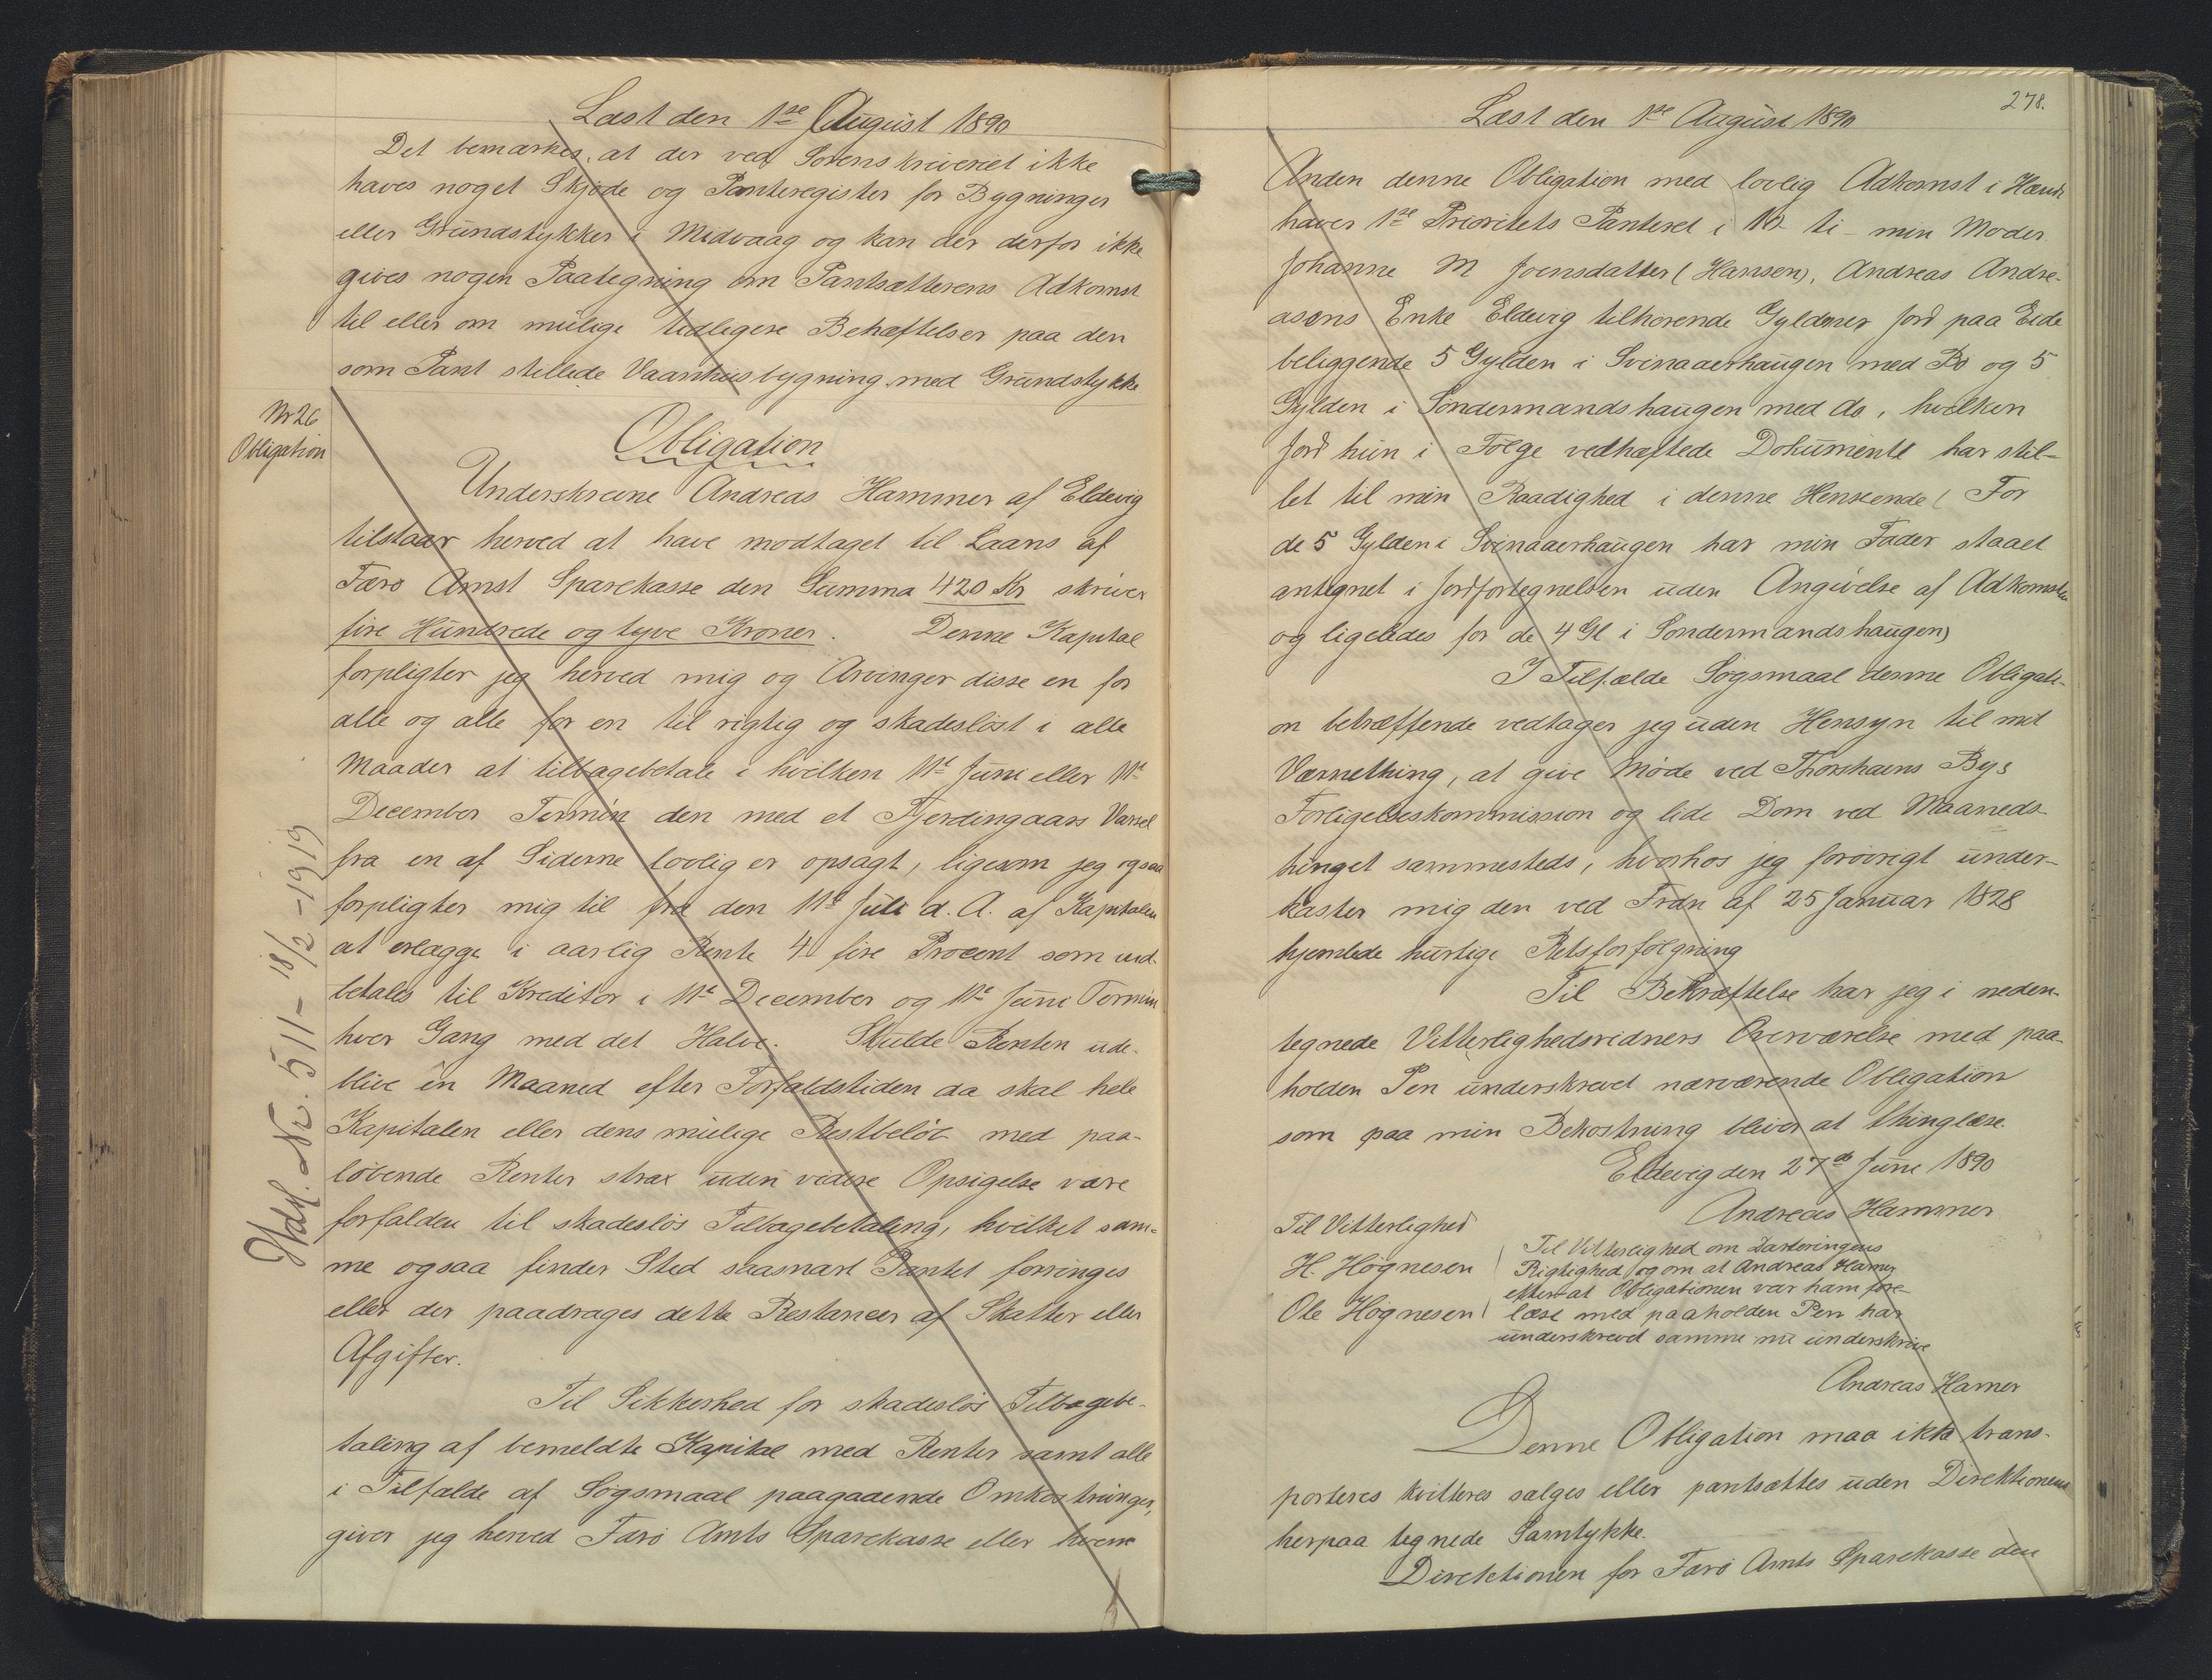 Læst den 1ste August 1890
Det bemærkes, at der ved Sorenskriveriet ikke
haves noget Skjøde og Panteregister for Bygninger
eller Grundstykker i Midvaag og kan der derfor ikke
gives nogen Paategning om Pantsætterens Adkomst
til eller om mulige tidligere Behæftelser paa den
som Pant stillede Vaanhusbygning med Grundstykke
Nr 26
Obligation
Obligation
Underskrevne Andreas Hammer af Eldevig
tilstaar herved at have modtaget til Laans af
Færø Amst Sparekasse den Summa 420 Kr skriver
fire Hundrede og tyve Kroner. Denne Kapital
forpligter jeg herved mig og Arvinger disse en for
alle og alle for en til rigtig og skadesløst i alle
Maader at tilbagebetale i hvilken 11te Juni eller 11te
December Termin den med et Fjerdingaars Varsel
fra en af Siderne lovlig er opsagt, ligesom jeg ogsaa
forpligter mig til fra den 11te Juli d. A. af Kapitalen
at erlægge i aarlig Rente 4 fire Procent som ud-
betales til Kreditor i 11te December og 11te Juni Termin
hver Gang med det Halve. Skulde Renten ude-
blive en Maaned efter Forfaldstiden da skal hele
Kapitalen eller dens mulige Restbeløb med paa-
løbende Renter strax uden videre Opsigelse være
forfalden til skadesløs Tilbagebetaling, hvilket sam-
me ogsaa finder Sted saasnart Pantet forringes
eller der paadrages dette Restancer af Skatter eller
Afgifter.
Til Sikkerhed for skadesløs Tilbagebe-
taling af bemeldte Kapital med Renter samt alle
i Tilfælde af Søgsmaal paagaaende Omkostninger,
giver jeg herved Færø Amts Sparekasse eller hvem
Udsl. Nr. 511 - 18/2 - 1919
278.
Læst den 1ste August 1890
Anden denne Obligation med lovlig Adkomst i Hænde
haver 1ste Prioritets Panteret i 10 ti min Moder
Johanne M Joensdatter (Hansen), Andreas Andre-
asens Enke Eldevig tilhørende Gylden Jord paa Eide
beliggende 5 Gylden i Svinaaerhaugen med Bø og 5
Gylden i Søndermandshaugen med do, hvilken
Jord hun i Følge vedhæftede Dokumente har stil-
let til min Raadighed i denne Henseende (For
de 5 Gylden i Svinaaerhaugen har min Fader staaet
antegnet i Jordfortegnelsen uden Angivelse af Adkomsten
og ligeledes for de 4 Gl i Søndermandshaugen)
I Tilfælde Søgsmaal denne Obligati-
on betræffende vedtager jeg uden Hensyn til mit
Værnething, at give Møde ved Thorshavns Bys
Forligelseskommission og lide Dom ved Maaneds-
tinget sammesteds, hvorhos jeg forøvrigt under-
kaster mig den ved Frdn af 25 Januar 1828
hjemlede hurtige Retsforfølgning
Til Bekræftelse har jeg i neden-
tegnede Vitterlighedsvidners Overværelse med paa-
holden Pen underskrevet nærværende Obligation
som paa min Bekostning bliver at thinglæse.
Eldevig den 27de Juni 1890
Andreas Hammer
Til Vitterlighed
H. Høgnesen
Ole Høgnesen
Til Vitterlighed om Dateringens
Rigtighed og om at Andreas Hamer
efter at Obligationen var ham fore-
læst med paaholden Pen har
underskrevet samme nu underskrive
Andreas Hamer
Denne Obligation maa ikke trans-
porteres kvitteres sælges eller pantsættes uden Direktionens
herpaa tegnede Samtykke.
Direktionen for Færø Amts Sparekasse den